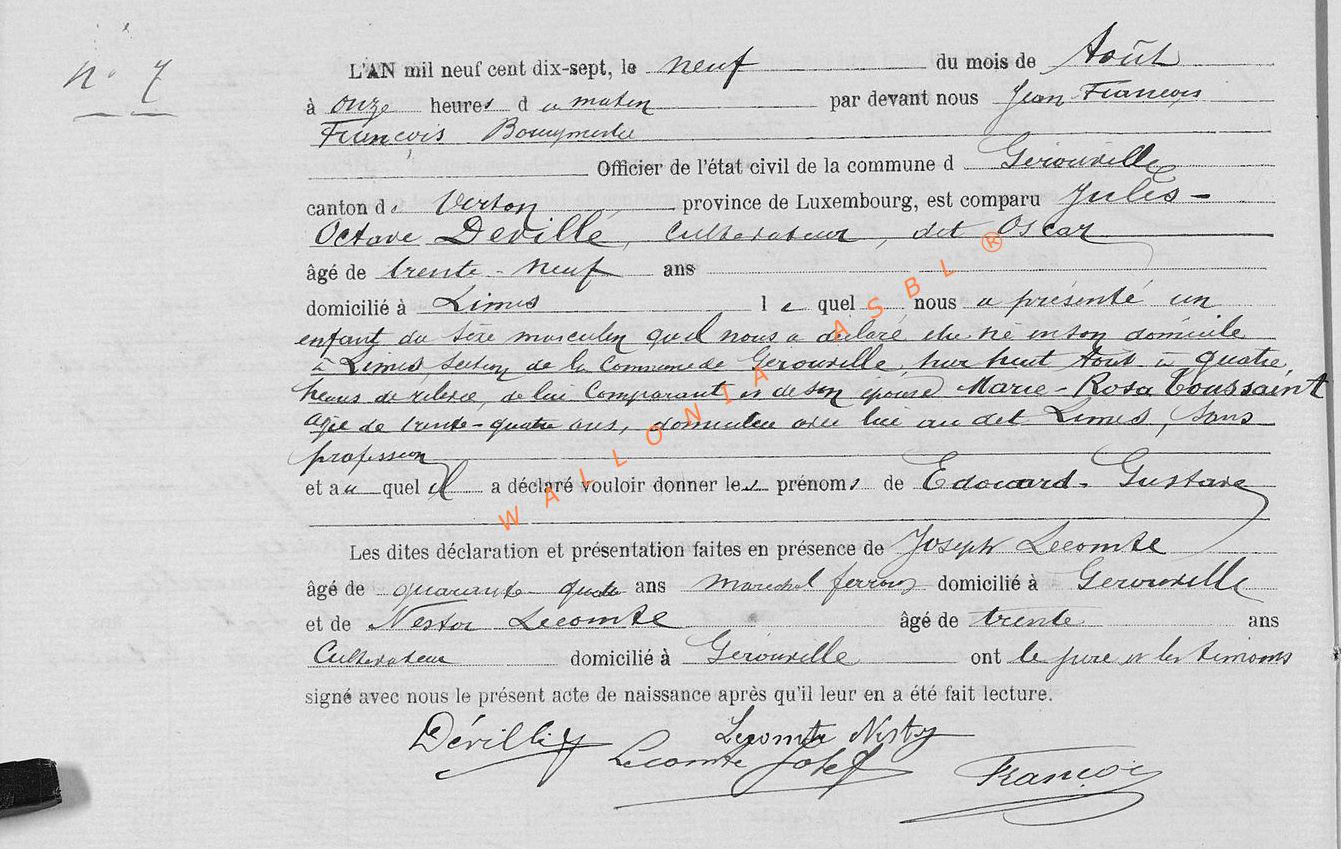 n° 7
L'AN mil neuf cent dix-sept, le neuf du mois de Août
à onze heures du matin par devant nous Jean-François
François Bourgmestre
Officier de l'état civil de la commune d Gérouville
canton de Virton province de Luxembourg, est comparu Jules-
Octave Devillé, Cultivateur, dit Oscar
âgé de trente-neuf ans
domicilié à Limes lequel nous a présenté un
enfant du sexe masculin qu'il nous a déclaré être né en son domicile
à Limes section de la Commune de Gérouville, hier huit Août à quatre
heures de relevée, de lui Comparant et de son épouse Marie-Rosa Toussaint
âgée de trente-quatre ans, domiciliée avec lui au dit Limes, sans
profession
et auquel il a déclaré vouloir donner les prénoms de Edouard-Gustave
Les dites déclaration et présentation faites en présence de Joseph Lecomte
âgé de quarante quatre ans maréchal ferrant domicilié à Gérouville
et de Nestor Lecomte âgé de trente ans
Cultivateur domicilié à Gérouville ont le père et les témoins
signé avec nous le présent acte de naissance après qu'il leur en a été fait lecture.
Lecomte Nestor
Lecomte Josef
François
WALLONIA ASBL ®